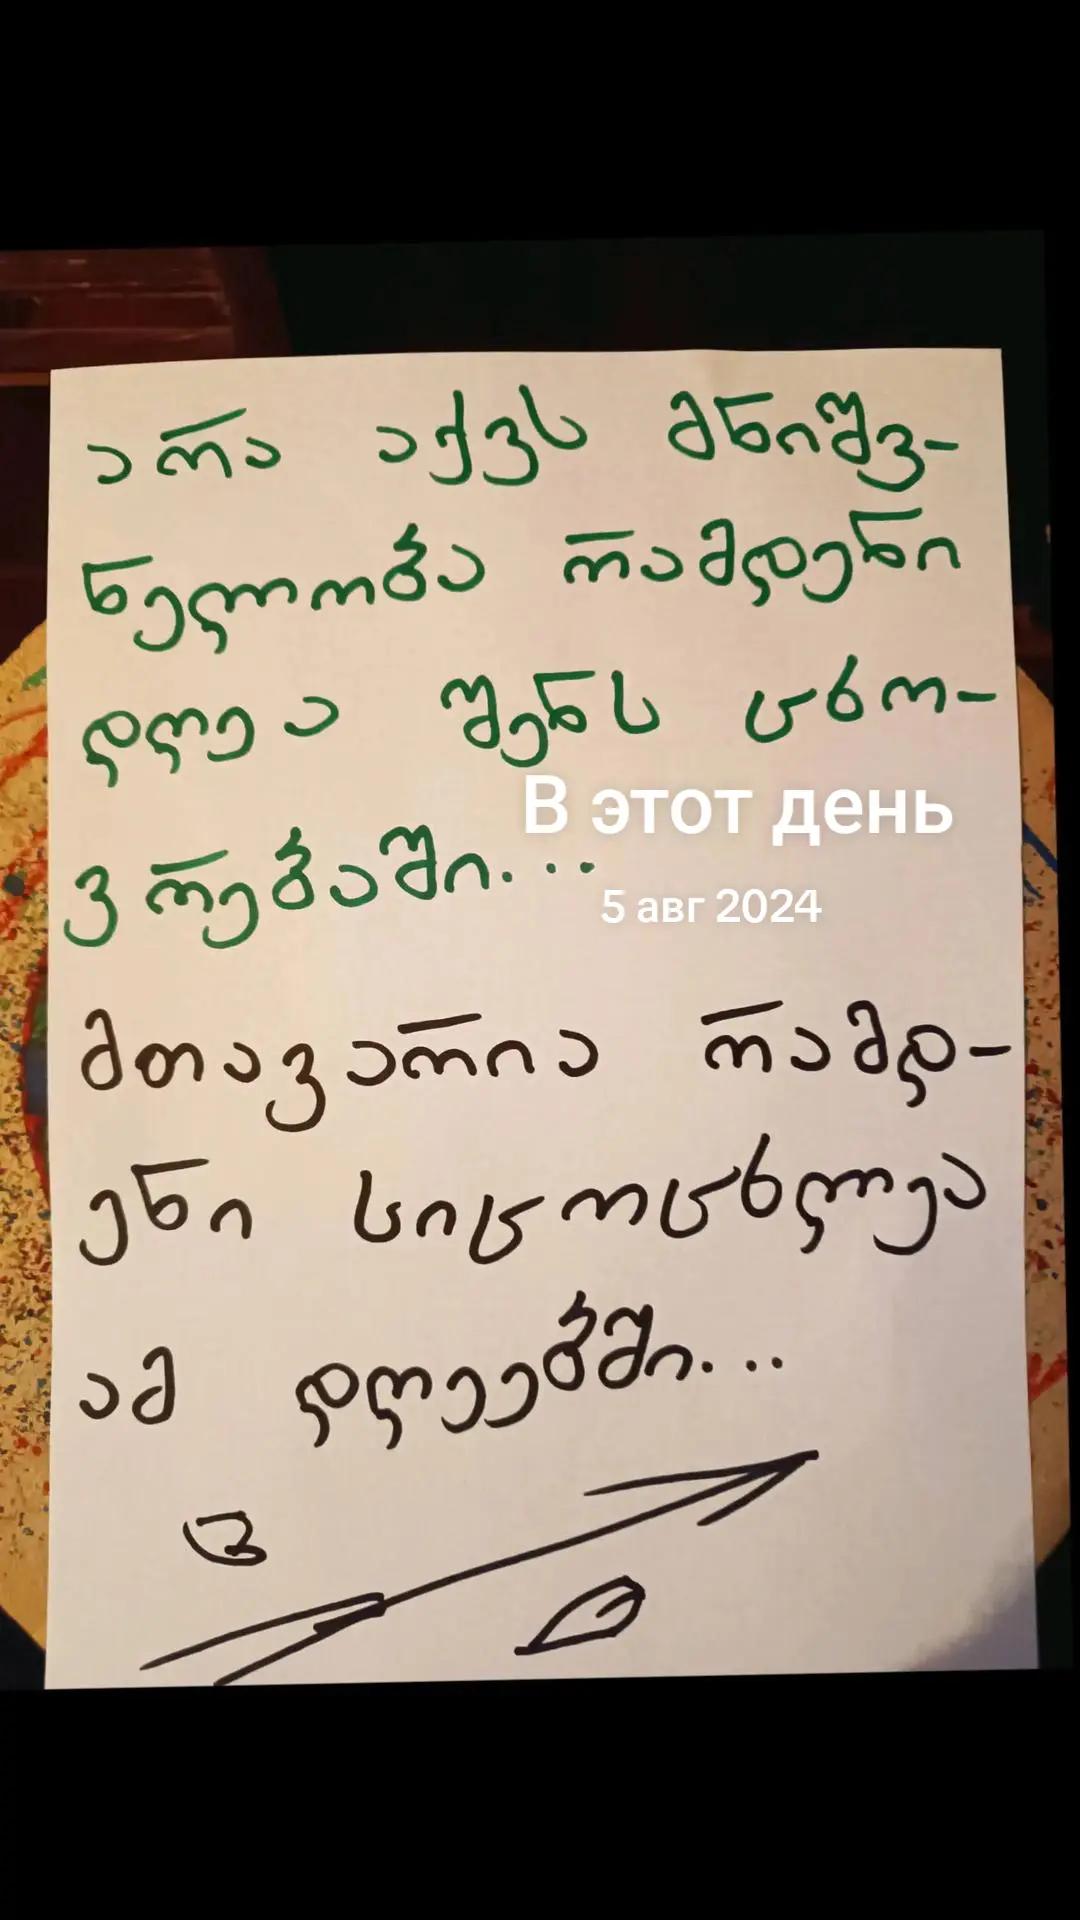 არა აქვს მნიშვ-
ნელობა რამდენი
დღეა შენს ცხო-
В этот день
ვრებაში...
5 авг 2024
მთავარია რამდ-
ენი სიცოცხლეა
ამ დღეებში...